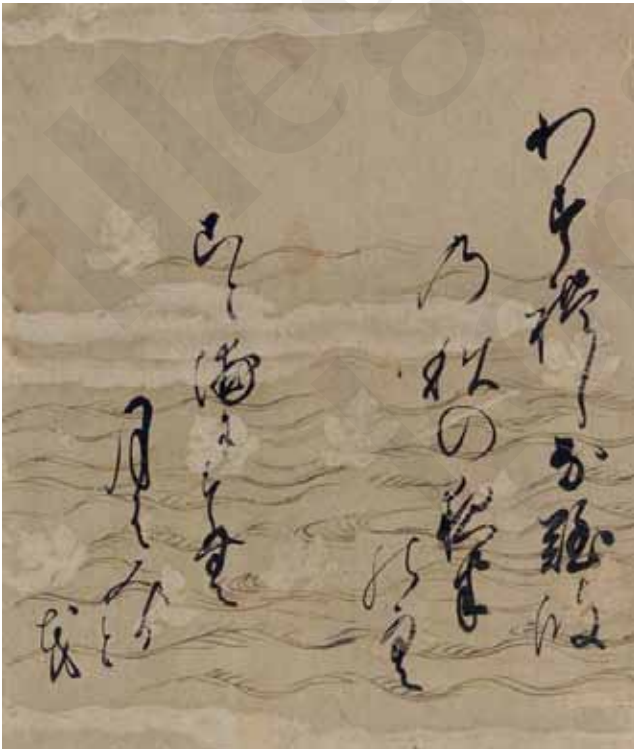 わすれしな難波
乃秋の夜半
の空
こと浦にすむ
月はみると
も